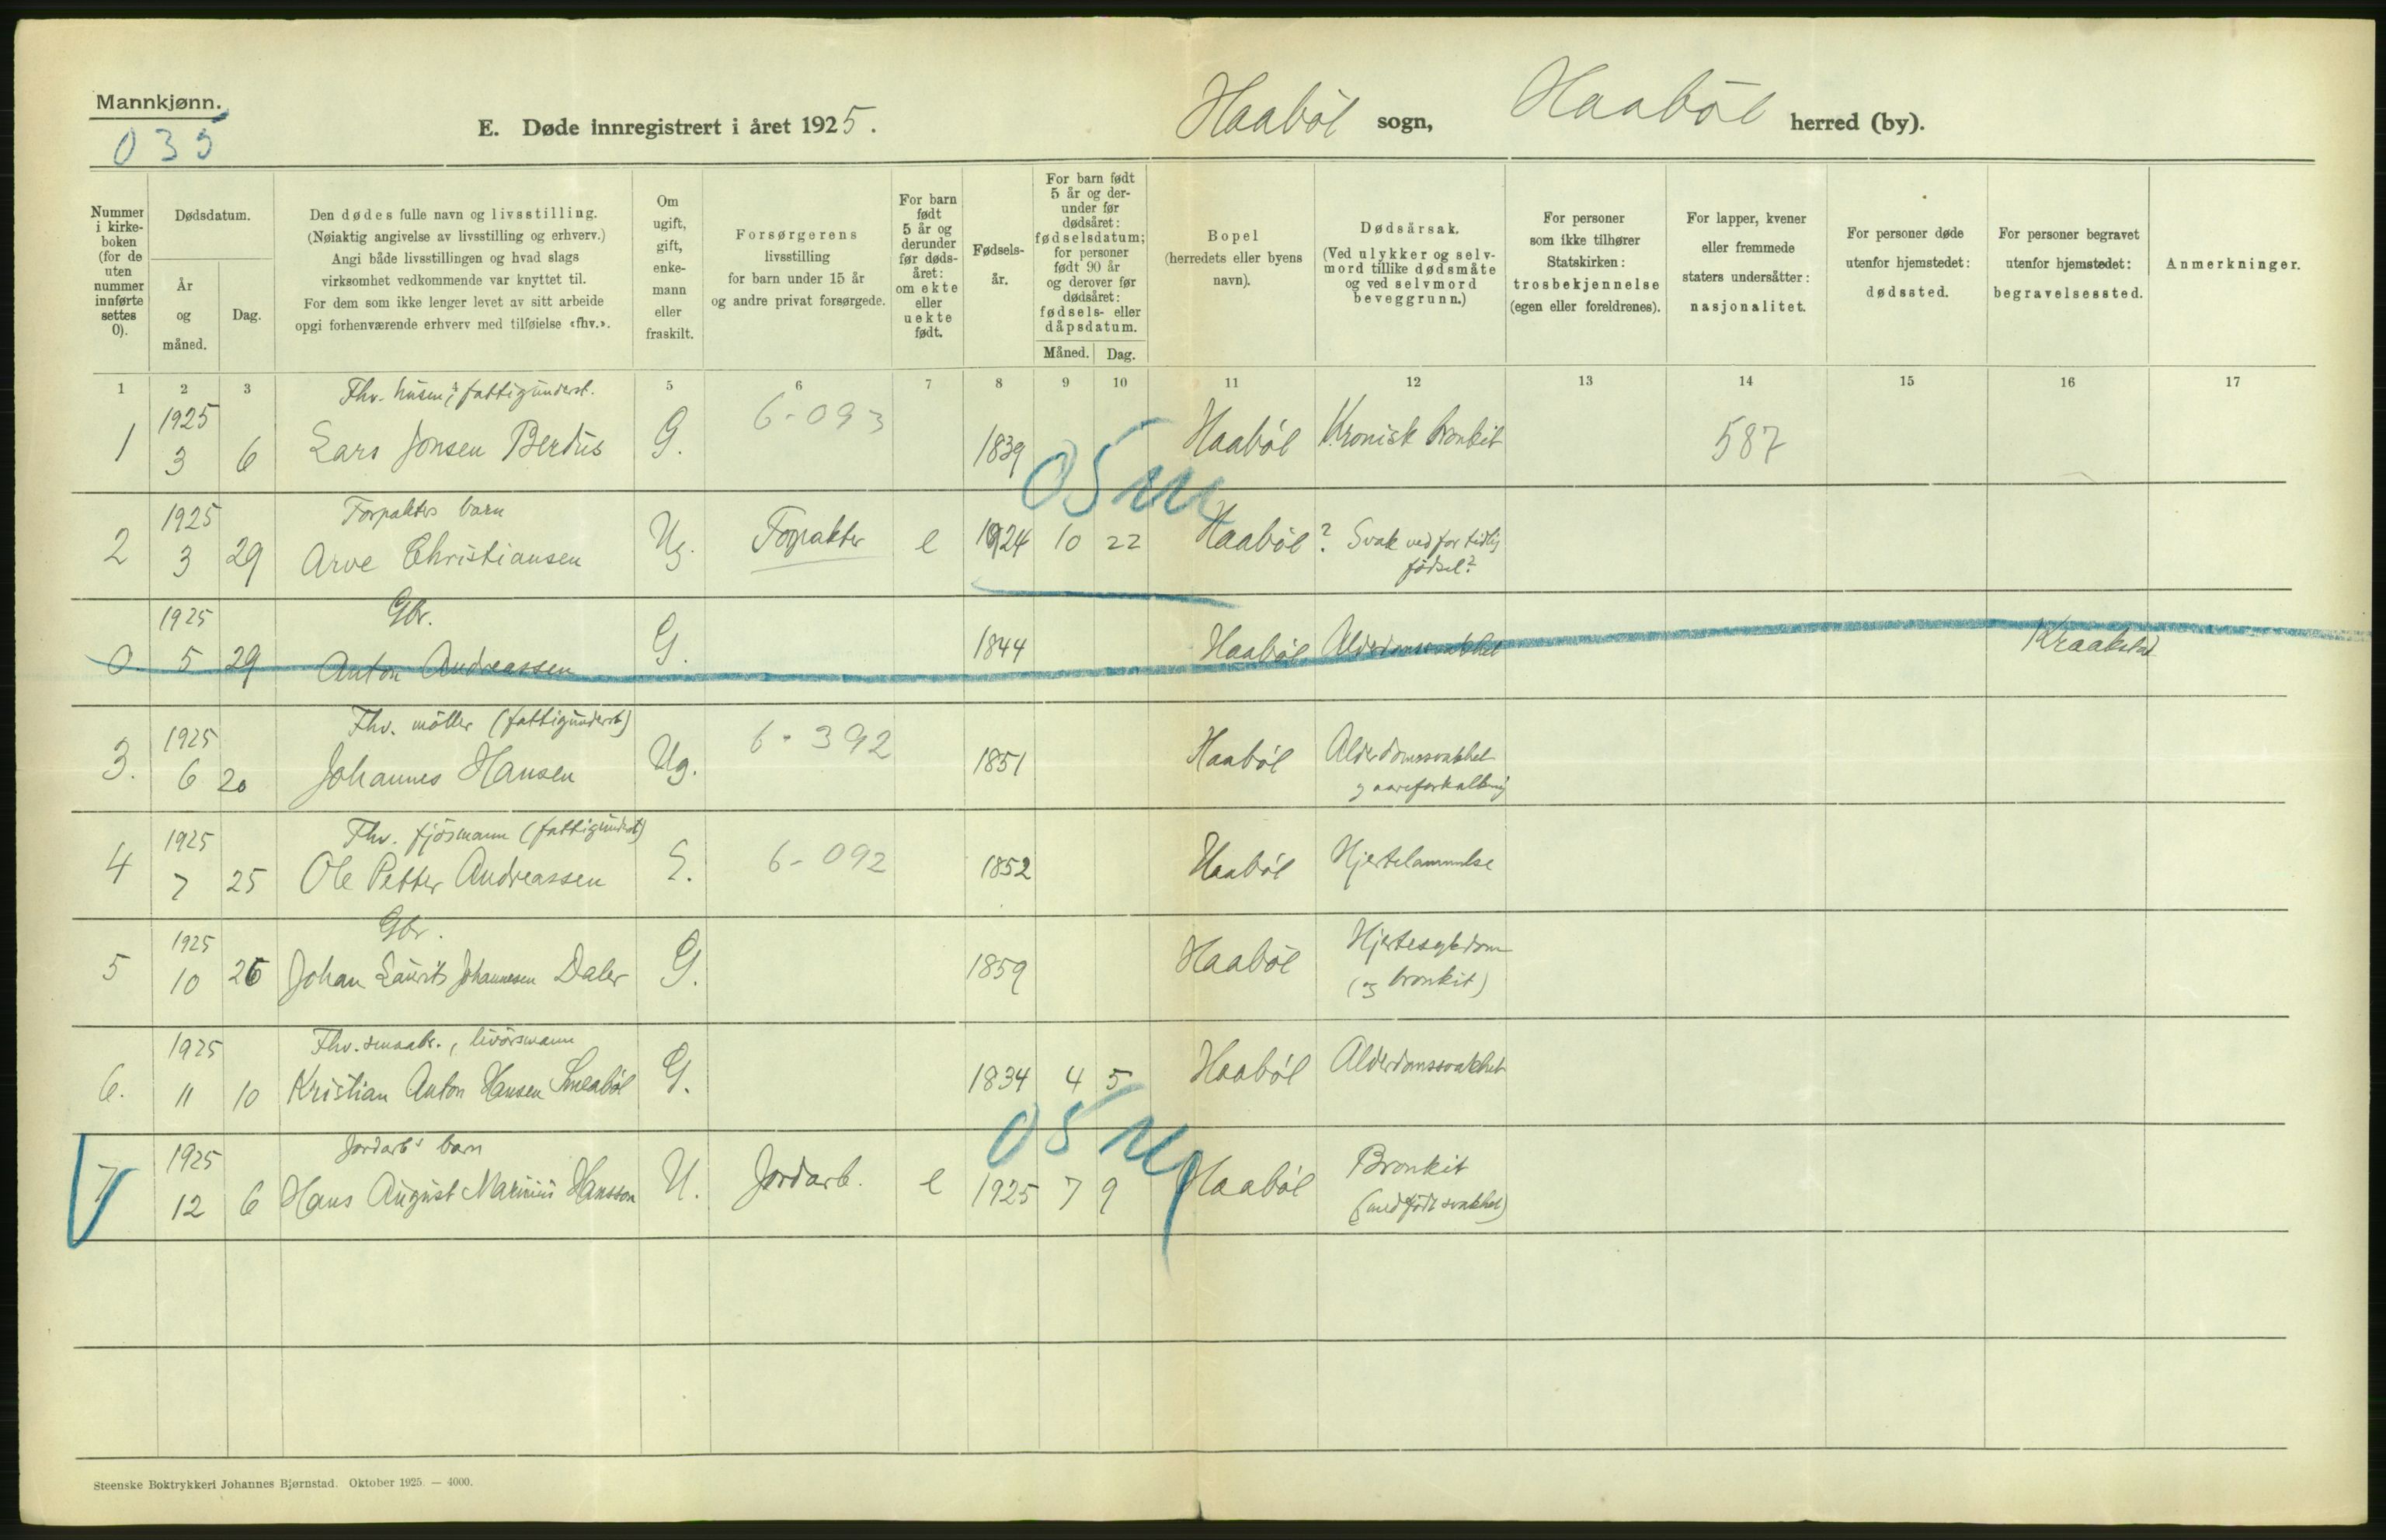 Mannkjønn.
035
E. Døde innregistrert i året 1925.
Haaböl sogn, Haaböl herred (by).
Nummer i kirke- boken (for de uten nummer innførte settes 0).
Dødsdatum.
År og måned.
Dag.
Den dødes fulle navn og livsstilling.
(Nøiaktig angivelse av livsstilling og erhverv.)
Angi både livsstillingen og hvad slags
virksomhet vedkommende var knyttet til.
For dem som ikke lenger levet av sitt arbeide
opgi forhenværende erhverv med tilføielse «fhv.».
Om ugift, gift, enke- mann eller fraskilt.
Forsørgerens
livsstilling
for barn under 15 år
og andre privat forsørgede.
For barn født 5 år og derunder før døds- året: om ekte eller uekte født.
Fødsels- år.
For barn født 5 år og der- under før dødsåret: fødselsdatum; for personer født 90 år og derover før dødsåret: fødsels- eller dåpsdatum.
Måned. Dag.
Bopel
(herredets eller byens
navn).
Dødsårsak.
(Ved ulykker og selv-
mord tillike dødsmåte
og ved selvmord
beveggrunn.)
For personer
som ikke tilhører
Statskirken:
trosbekjennelse
(egen eller foreldrenes).
For lapper, kvener
eller fremmede
staters undersåtter:
nasjonalitet.
For personer døde
utenfor hjemstedet:
dødssted.
For personer begravet
utenfor hjemstedet:
begravelsessted.
Anmerkninger.
1 2 3 5 6 7 8 9 10 11 12 13 14 15 16 17
Fhv. fattigunderst.
1 1925 3 6 Lars Jonsen Berdus G. 6-093 1839 Haaböl Kronisk bronkit 587
05 m
Forpakters barn
2 1925 3 29 Arve Christiansen Ug. Forpakter e 1924 10 22 Haaböl ? Svak ved for tidlig
födsel?
Gbr.
0 1925 5 29 Anton Andreassen G. 1844 Haaböl Alderdomssvakhet Kraakstad
Fhv. möller (fattigunderst)
3. 1925 6 20 Johannes Hansen Ug. 6-392 1851 Haaböl Alderdomssvakhet
og aareforkalkning
Fhv. fjösmann (fattigunderst)
4 1925 7 25 Ole Petter Andreassen E. 6-092 1852 Haaböl Hjertelammelse
Gbr.
5 1925 10 26 Johan Laurits Johannesen Daler G. 1859 Haaböl Hjertesykdom
(og bronkit)
Fhv. smaabr., livörsmann
6. 1925 11 10 Kristian Anton Hansen Smeaböl G. 1834 4 5 Haaböl Alderdomssvakhet
05 m
Jordarb's barn
7 1925 12 6 Hans August Marinius Hansson U. Jordarb. e 1925 7 9 Haaböl Bronkit
(medfödt svakhet)
Steenske Boktrykkeri Johannes Bjørnstad. Oktober 1925. — 4000.